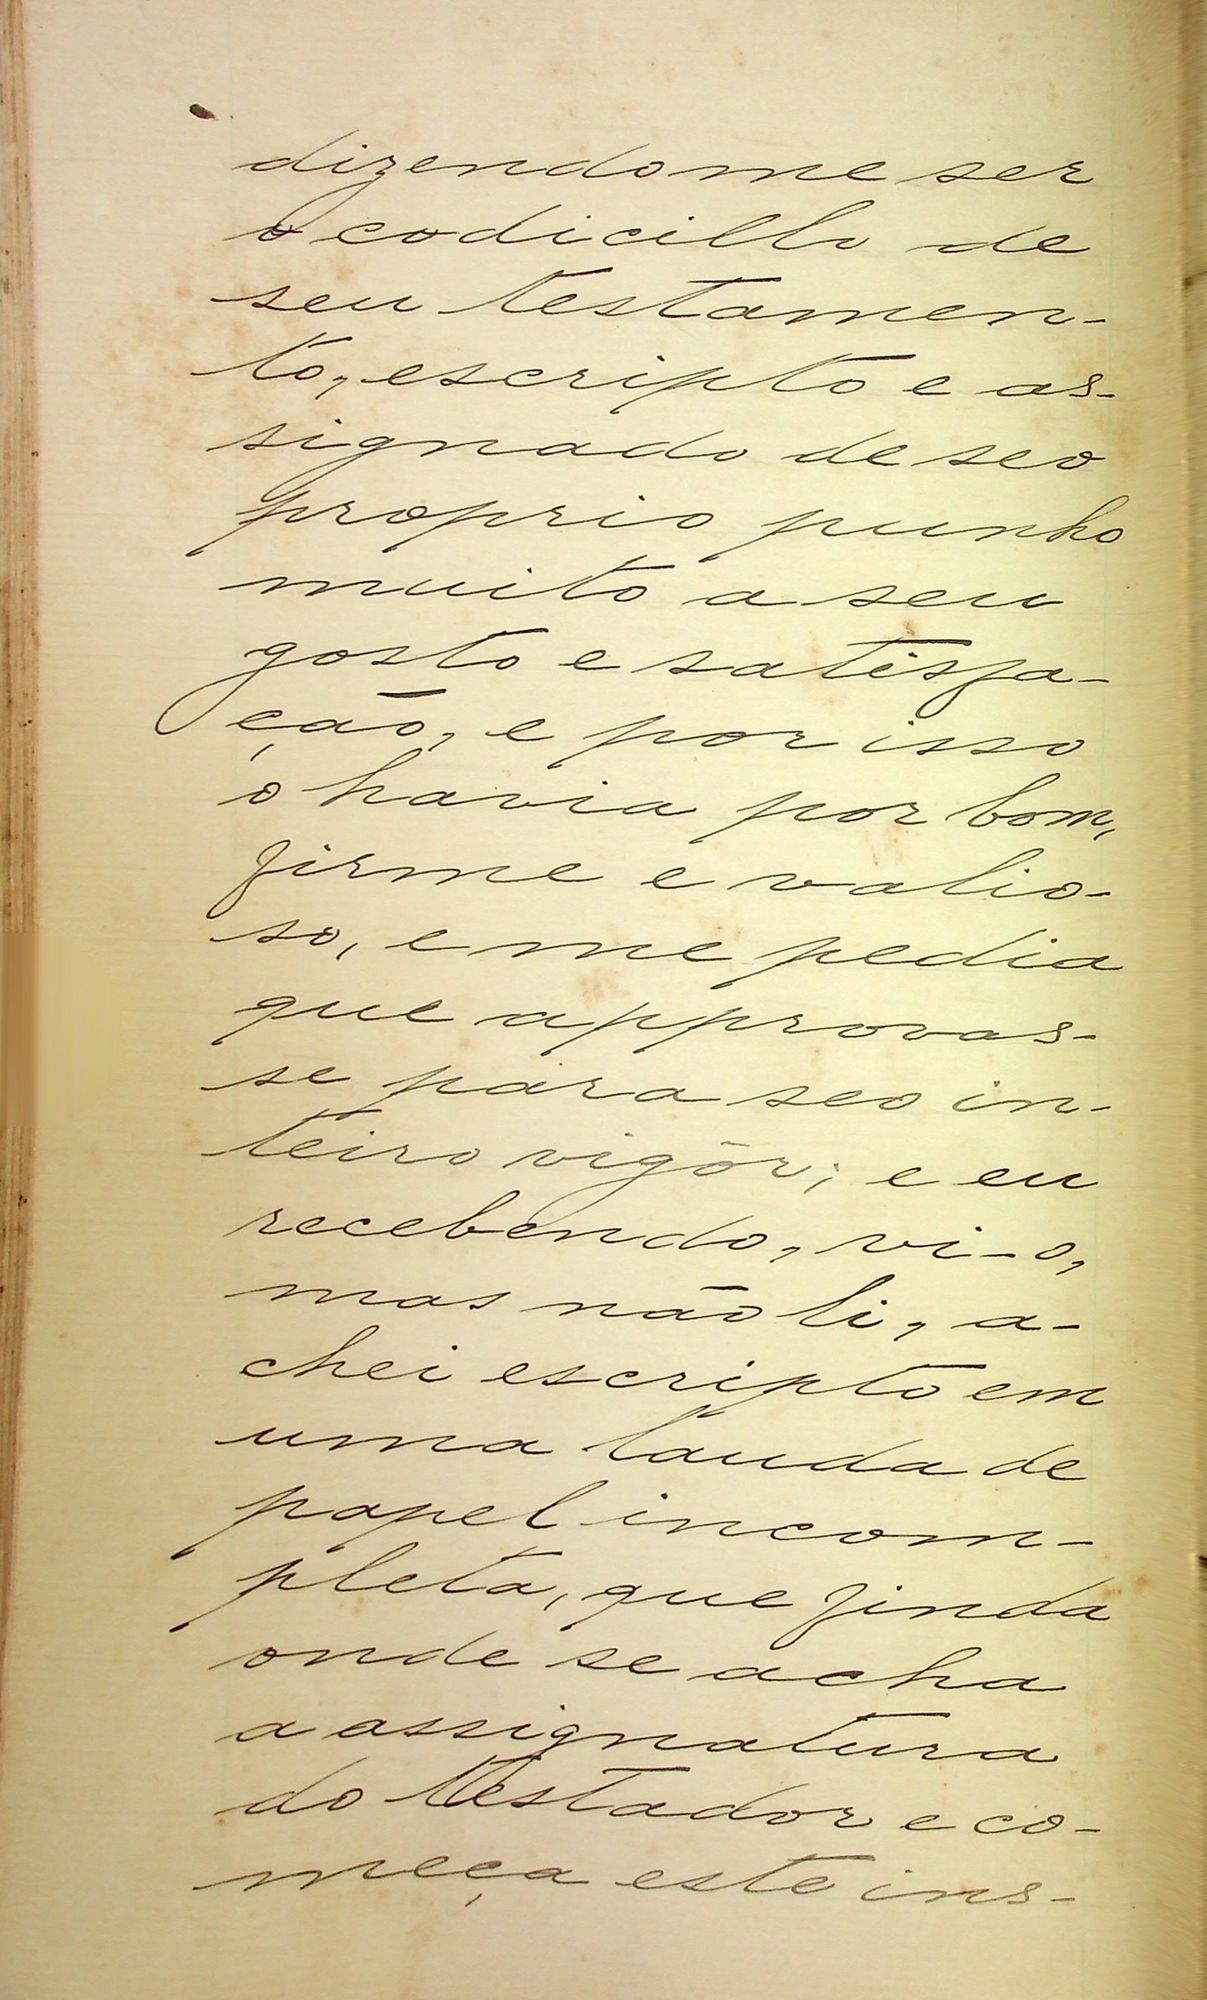 dizendo me ser
o codicillo de
seu testamen-
to, escripto e as-
signado de seo
proprio punho
muito a seu
gosto e satisfa-
ção, e por isso
o havia por bom,
firme e valio-
so, e me pedia
que approvas-
se para seo in-
teiro vigôr; e eu
recebendo, vi-o,
mas não li, a-
chei escripto em
uma lauda de
papel incom-
pleta, que finda
onde se acha
a assignatura
do testador e co-
meça este ins-